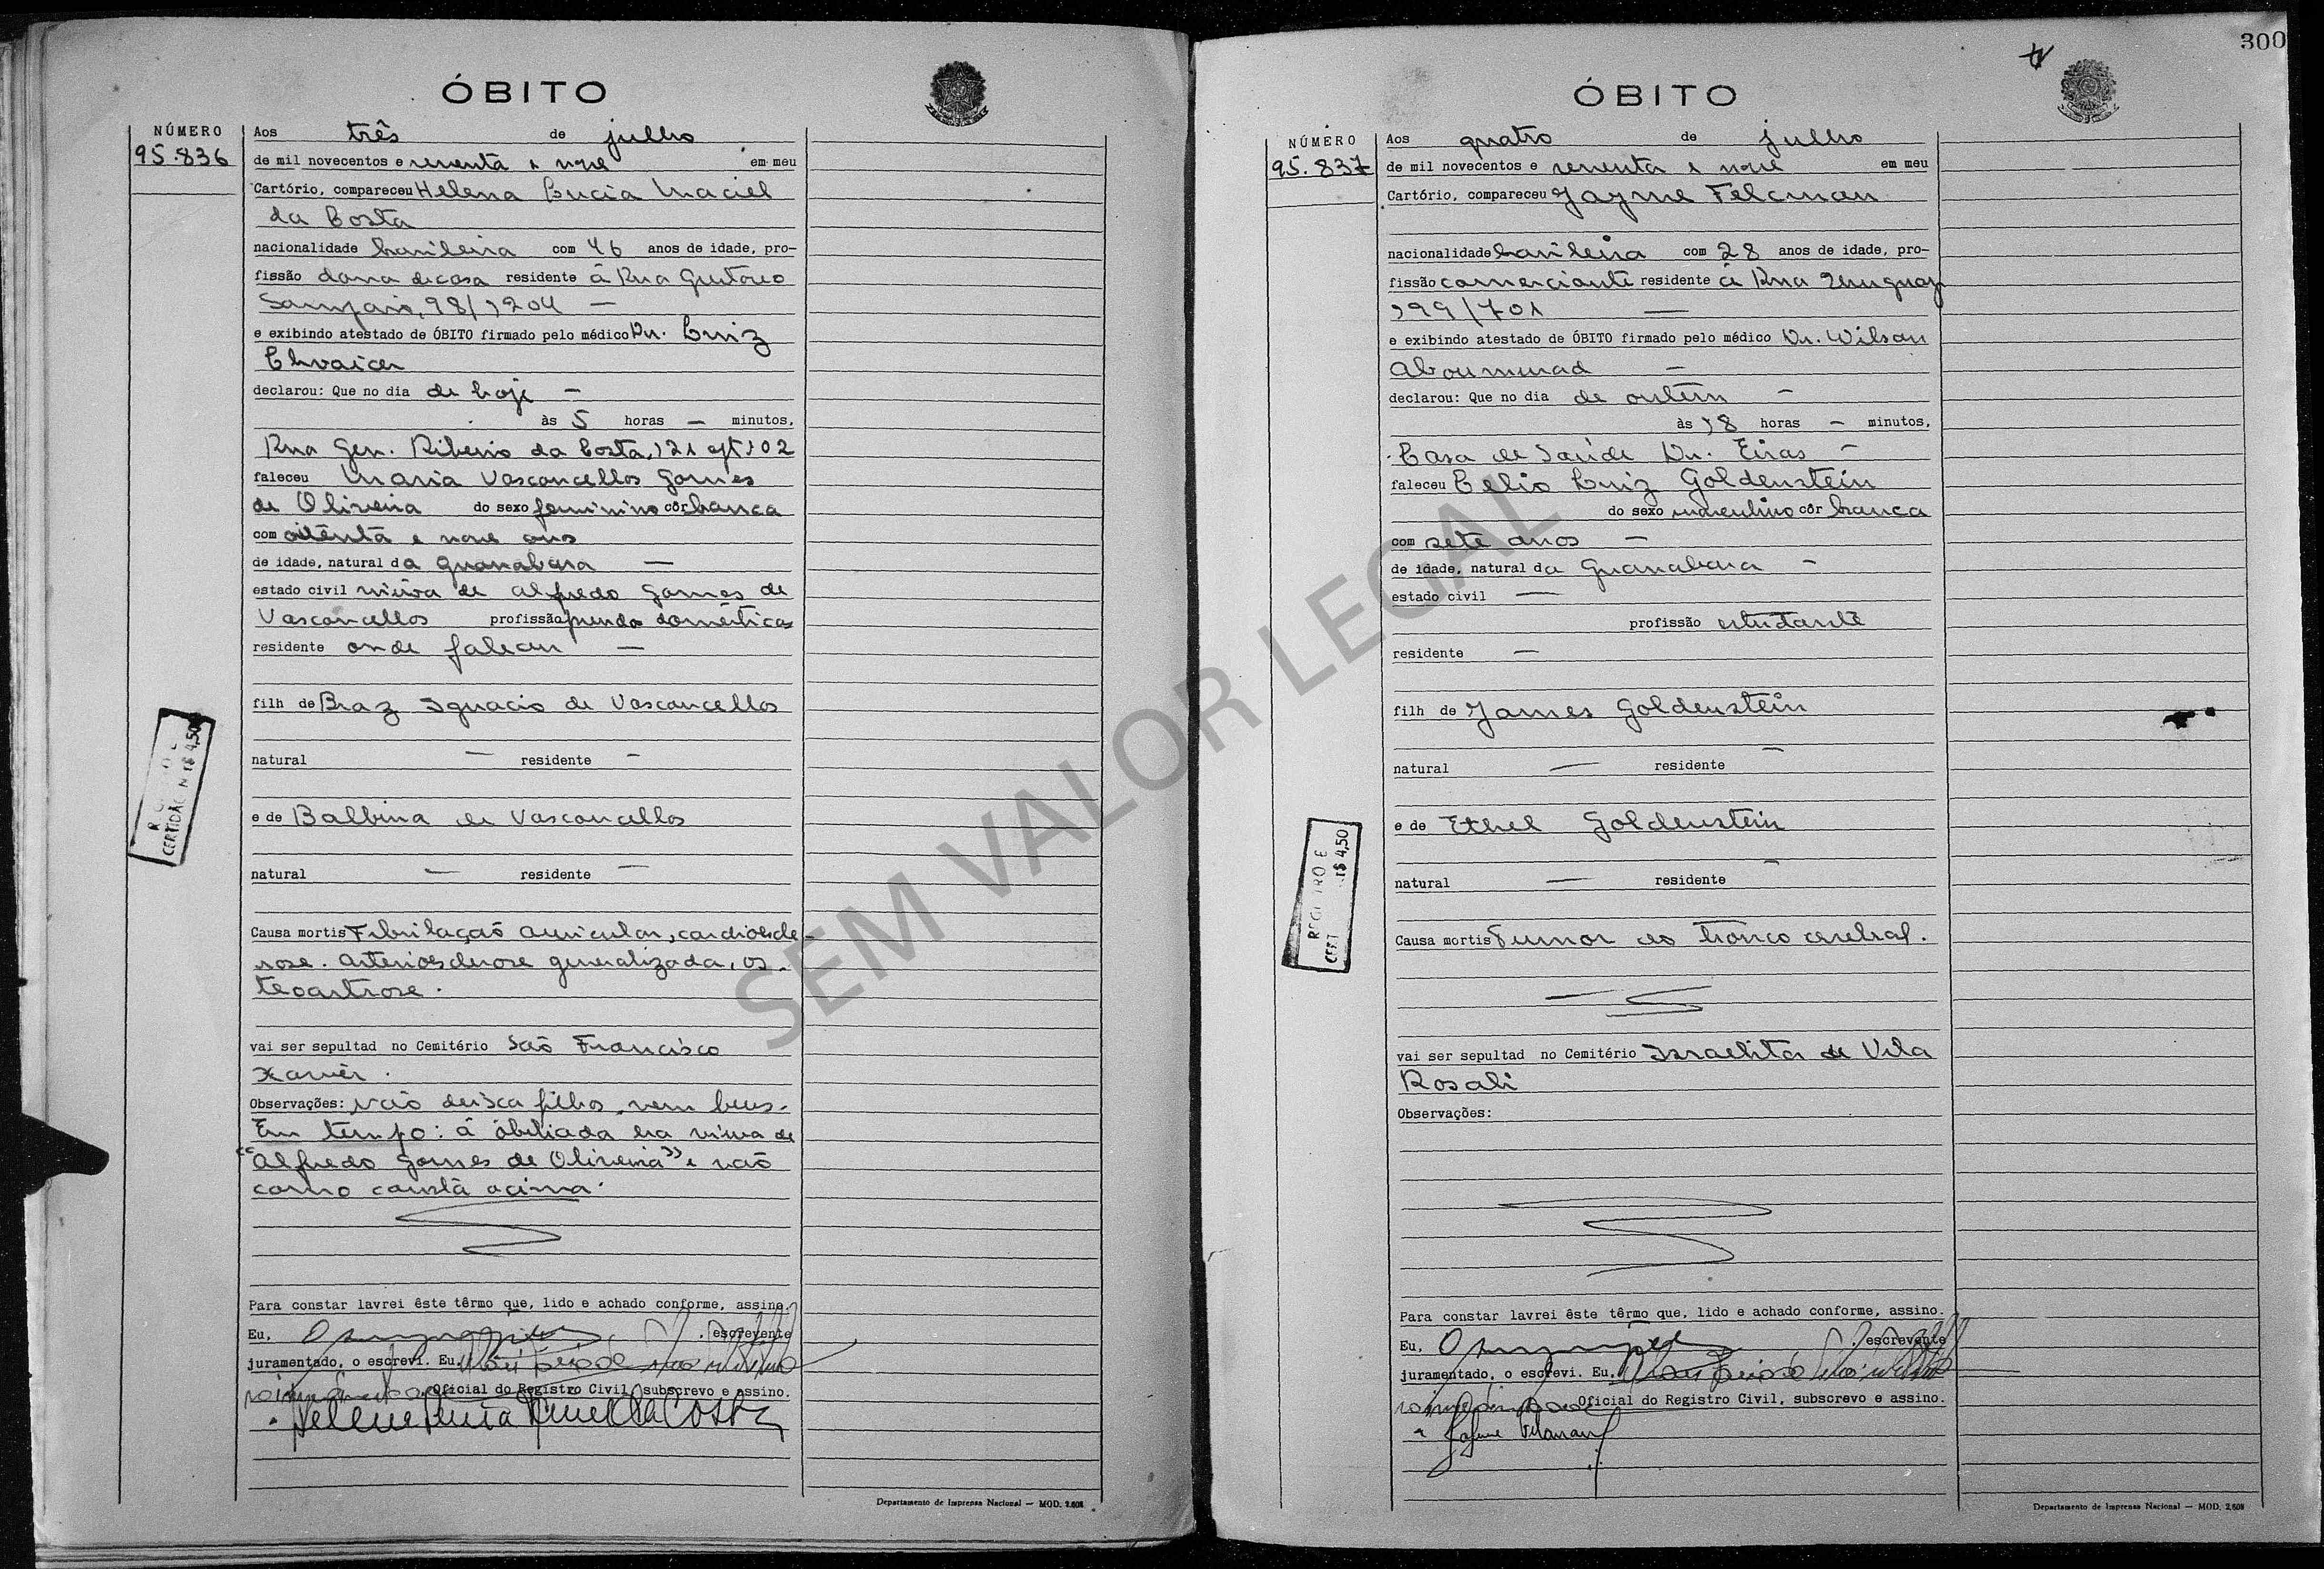 ÓBITO
NÚMERO
95.836
Aos três de julho
de mil novecentos e sessenta e nove em meu
Cartório, compareceu Helena Lucia Maciel
da Costa
nacionalidade brasileira com 46 anos de idade, pro-
fissão dona de casa residente à Rua Gustavo
Sampaio, 98/1204 —
e exibindo atestado de ÓBITO firmado pelo médico Dr. Luiz
declarou: Que no dia de hoje —
às 5 horas — minutos,
Rua Gen. Ribeiro da Costa, 121 apt 102
faleceu Maria Vasconcellos Gomes
de Oliveira do sexo feminino côr branca
com oitenta e nove anos
de idade, natural da Guanabara —
estado civil viúva de Alfredo Gomes de
Vasconcellos profissão prendas domésticas
residente onde faleceu —
filh de Braz Ignacio de Vasconcellos
natural — residente —
e de Balbina de Vasconcellos
natural — residente —
Causa mortis Fibrilação auricular, cardioescle-
rose. Arteriosclerose generalizada, os-
teoartrose.
vai ser sepultad no Cemitério São Francisco
Xavier.
Observações: Não deixa filhos, nem bens.
Em tempo: á obituada era viuva de
"Alfredo Gomes de Oliveira" e não
como constá acima.
Para constar lavrei êste têrmo que, lido e achado conforme, assino.
Eu, , escrevente
juramentado, o escrevi. Eu,
Oficial do Registro Civil, subscrevo e assino.
Helena Lucia Maciel da Costa
Departamento de Imprensa Nacional — MOD. 2.608
CERTIDÃO N R$ 4,50
300
ÓBITO
NÚMERO
95.837
Aos quatro de julho
de mil novecentos e sessenta e nove em meu
Cartório, compareceu Jayme Felcman
nacionalidade brasileira com 28 anos de idade, pro-
fissão comerciante residente à Rua Uruguay
199/701 —
e exibindo atestado de ÓBITO firmado pelo médico Dr. Wilson
Aboumurad —
declarou: Que no dia de ontem —
às 18 horas — minutos,
Casa de Saúde Dr. Eiras —
faleceu Celio Luiz Goldenstein
do sexo masculino côr branca
com sete anos —
de idade, natural da Guanabara —
estado civil —
profissão estudante
residente —
filh de James Goldenstein
natural — residente —
e de Ethel Goldenstein
natural — residente —
Causa mortis Tumor do tronco cerebral.
vai ser sepultad no Cemitério Israelita de Vila
Rosali
Observações:
Para constar lavrei êste têrmo que, lido e achado conforme, assino.
Eu, , escrevente
juramentado, o escrevi. Eu,
Oficial do Registro Civil, subscrevo e assino.
Jayme Felcman
Departamento de Imprensa Nacional — MOD. 2.608
REGISTRO E
CERT R$ 4,50
SEM VALOR LEGAL